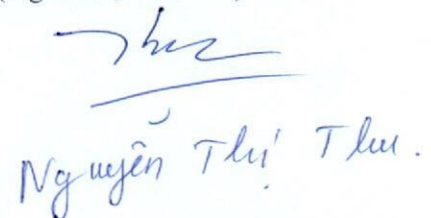 Thu
Nguyễn Thị Thu.